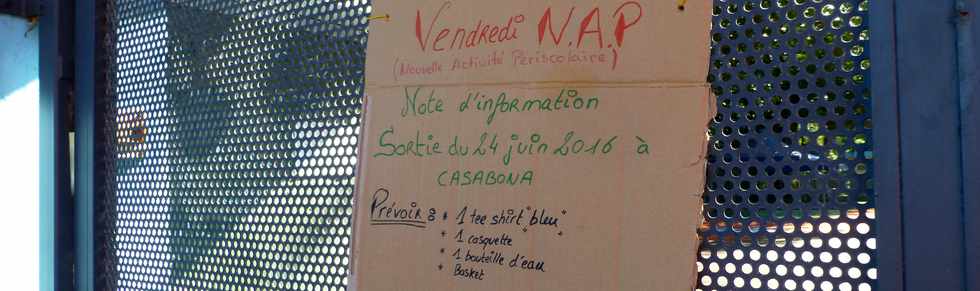 Vendredi N.A.P
(Nouvelle Activité Périscolaire)
Note d'information
Sortie du 24 juin 2016 à
CASABONA
Prévoir : * 1 tee shirt "bleu"
* 1 casquette
* 1 bouteille d'eau
* Basket